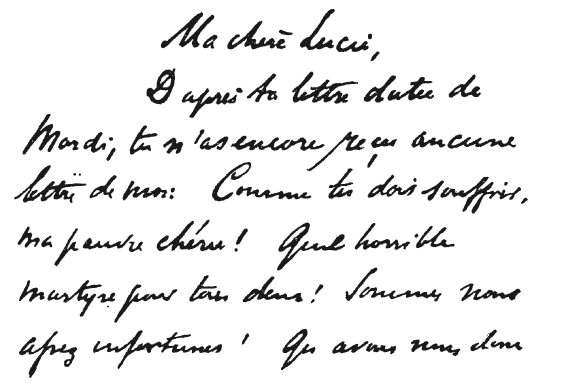 Ma chère Lucie,
D'après ta lettre datée de
Mardi, tu n'as encore reçu aucune
lettre de moi. Comme tu dois souffrir,
ma pauvre chérie! Quel horrible
martyre pour tous deux! Sommes nous
assez infortunés! Qu'avons nous donc